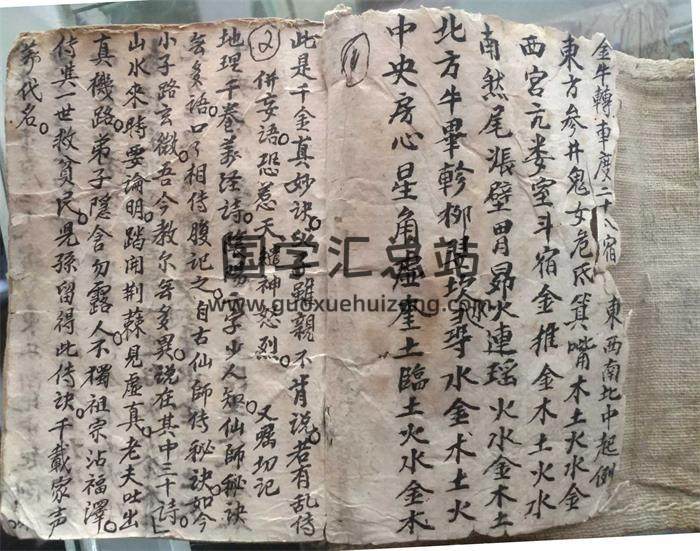 金牛轉車度二十八宿 東西南北中起例
東方參井鬼女危氐箕嘴木土火水金
西宮亢娄室斗宿金推金木土火水
南然尾漲壁胃昴火連瑶火水金木土
北方牛畢軫柳水金木土火
中央房心星角虛奎土臨土火水金木
①
此是千金真妙诀。父子雖親不肯說。若有乱传
② 併妄語。恐惹天譴神怒烈。 又囑切記
地理千卷義经詩。字少人知。仙師秘诀
無多語。口了相传腹記之。自古仙師传秘诀。如今
小子路玄微。吾今教尔無多異。說在其中三十詩
山水來時要論明。踏開荆蕀見虛真。老夫吐出
真機路。弟子隱含勿露人。不獨祖宗沾福澤。
传其世救貧民。児孫留得此传诀。千載家声
苐代名。
国学汇总站
www.guoxuehuizong.com